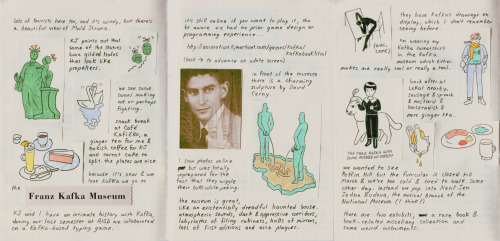 lots of tourists here too, and it's windy, but there's
a beautiful view of Malá Strana.
KJ points out that
some of the statues
have gilded halos
that look like
propellers.
we see some
swans making
out or perhaps
fighting.
snack break
at Café
Kafíčko, a
ginger tea for me &
turkish coffee for KJ
and carrot cake to
split. the plates are nice.
because it's near & we
love Kafka we go to
the
Franz Kafka Museum
KJ and I have an intimate history with Kafka,
during our last semester at RISD we collaborated
on a Kafka-based typing game.
it's still online if you want to play it, tho
be aware: we had no prior game design or
programming experience...
(had to advance on title screen)
in front of the museum
there is a charming
sculpture by David
Černý.
I saw photos online
but was totally
unprepared for the
fact that they wiggle
their butts while peeing.
the museum is great,
like an existentially dreadful haunted house.
atmospheric sounds, dark & oppressive corridors,
labyrinths of filing cabinets, halls of mirrors,
lots of first editions and nice plaques.
they have Kafka's drawings on
display, which I don't remember
seeing before.
I'm wearing my
Kafka sweatshirt
in the Kafka
museum which either
makes me really cool or really a tool.
lunch after at
Lokal nearby,
sausage & spinach
& mustard &
horseradish &
more ginger tea.
we wanted to see
Petřín Hill but the funicular is closed til
March & we're too cold & tired to walk. some
other day. instead we pop into
the musical branch of the
National Museum (I think?)
there are two exhibits, a rare book &
book-related miscellany collection and
some weird instruments.